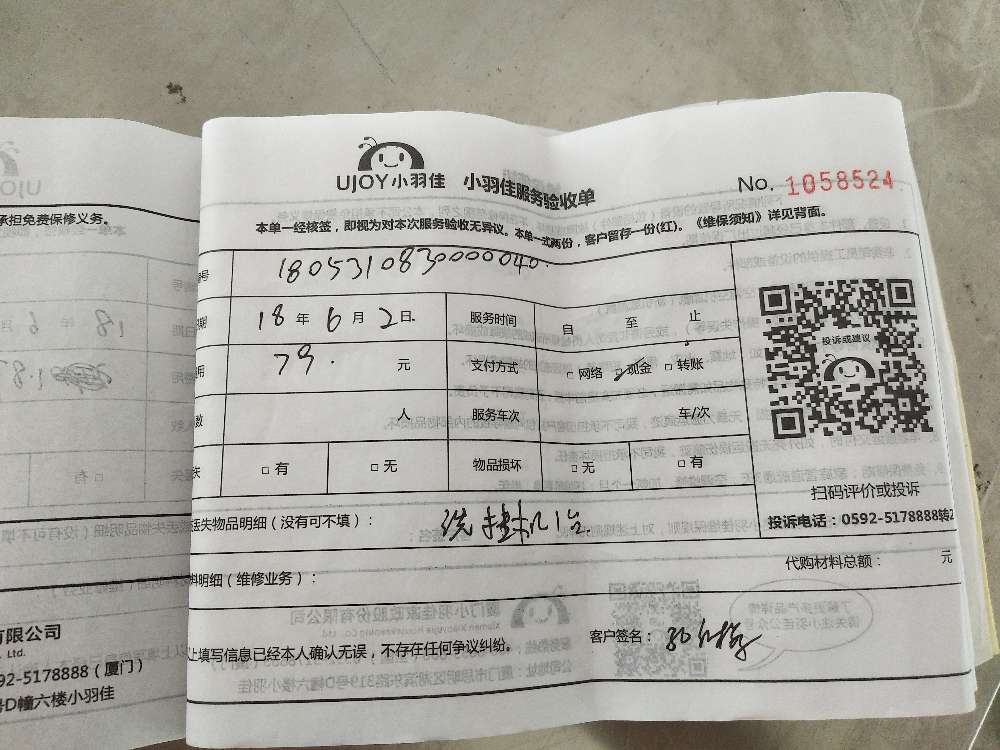 UJOY小羽佳 小羽佳服务验收单 No. 1058524
本单一经核签，即视为对本次服务验收无异议。本单一式两份，客户留存一份(红)。《维保须知》详见背面。
号 1805310830000040
期 18 年 6 月 2 日 服务时间 自 至 止
用 79. 元 支付方式 □网络 □现金 □转账
数 人 服务车次 车/次
失 □有 □无 物品损坏 □无 □有
投诉或建议
扫码评价或投诉
投诉电话：0592-5178888转2
遗失物品明细（没有可不填）： 洗挂机1台.
代购材料总额： 元
料明细（维修业务）：
上填写信息已经本人确认无误，不存在任何争议纠纷。 客户签名：
承担免费保修义务。
有限公司
. Ltd.
92-5178888（厦门）
号D幢六楼小羽佳